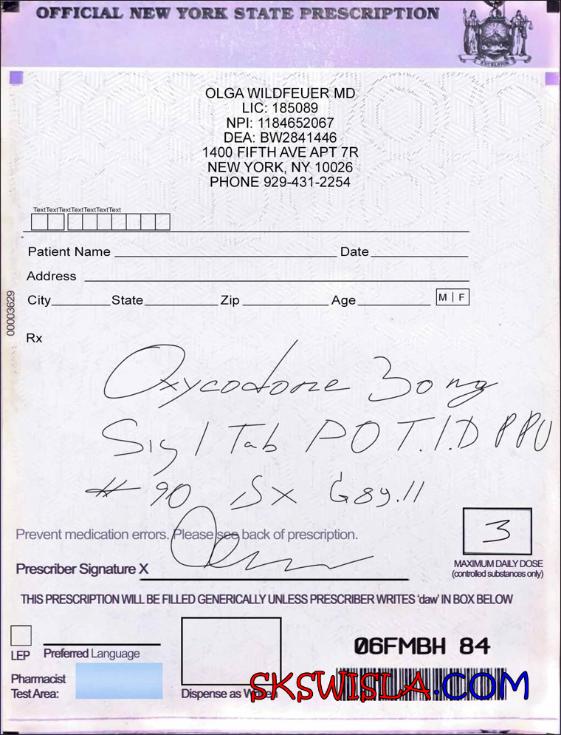 OFFICIAL NEW YORK STATE PRESCRIPTION
EXCELSIOR
OLGA WILDFEUER MD
LIC: 185089
NPI: 1184652067
DEA: BW2841446
1400 FIFTH AVE APT 7R
NEW YORK, NY 10026
PHONE 929-431-2254
TextTextTextTextTextTextText
Patient Name Date
Address
City State Zip Age M F
00003629
Rx
Oxycodone 30 mg
Sig 1 Tab PO T.I.D
# 90 G89.11
3
Prevent medication errors. Please see back of prescription.
Prescriber Signature X
MAXIMUM DAILY DOSE
(controlled substances only)
THIS PRESCRIPTION WILL BE FILLED GENERICALLY UNLESS PRESCRIBER WRITES 'daw' IN BOX BELOW
LEP Preferred Language
06FMBH 84
Pharmacist
Test Area:
Dispense as
SKSWISLA.COM